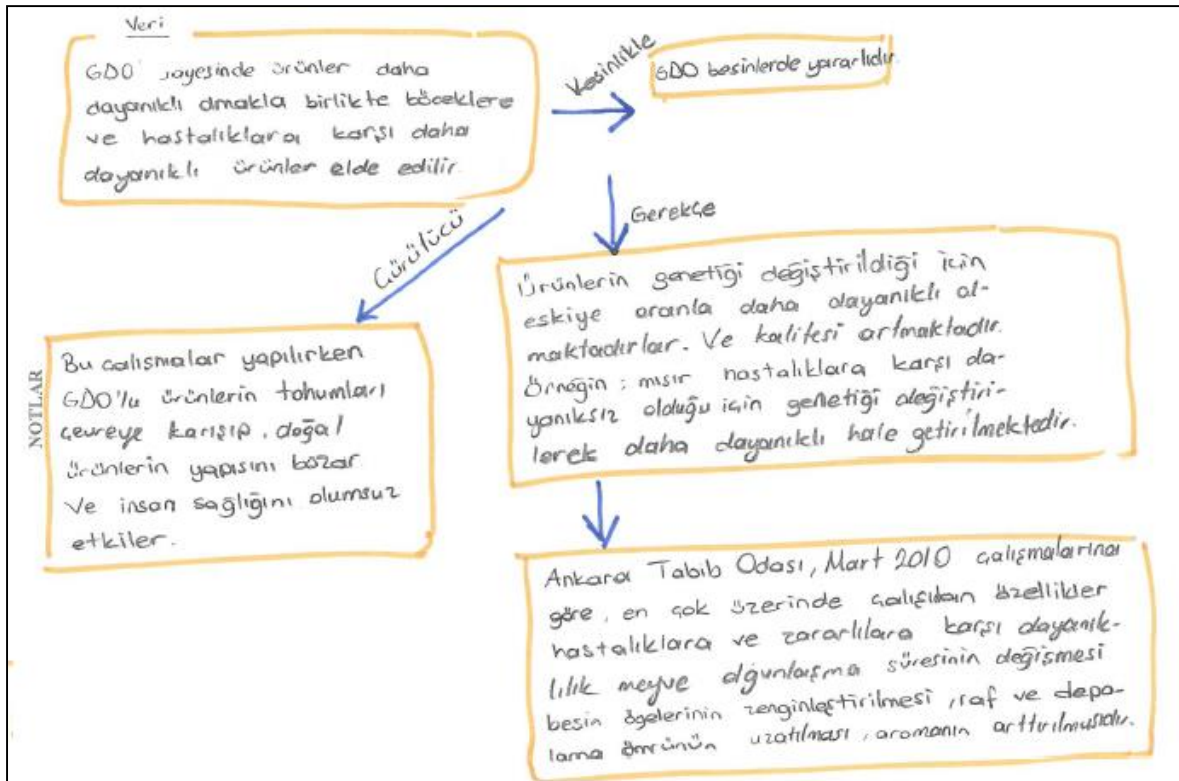 Veri
GDO' sayesinde ürünler daha
dayanıklı olmakla birlikte böceklere
ve hastalıklara karşı daha
dayanıklı ürünler elde edilir.
Kesinlikle
GDO besinlerde yararlıdır.
Gerekçe
Çürütücü
Ürünlerin genetiği değiştirildiği için
eskiye oranla daha dayanıklı ol-
maktadırlar. Ve kalitesi artmaktadır.
Örneğin: mısır hastalıklara karşı da-
yanıksız olduğu için genetiği değiştiri-
lerek daha dayanıklı hale getirilmektedir.
NOTLAR
Bu çalışmalar yapılırken
GDO'lu ürünlerin tohumları
çevreye karışıp, doğal
ürünlerin yapısını bozar
ve insan sağlığını olumsuz
etkiler.
Ankara Tabib Odası, Mart 2010 çalışmalarına
göre, en çok üzerinde çalışılan özellikler
hastalıklara ve zararlılara karşı dayanık-
lılık meyve olgunlaşma süresinin değişmesi
besin ögelerinin zenginleştirilmesi, raf ve depo-
lama ömrünün uzatılması, aromanın arttırılmasıdır.